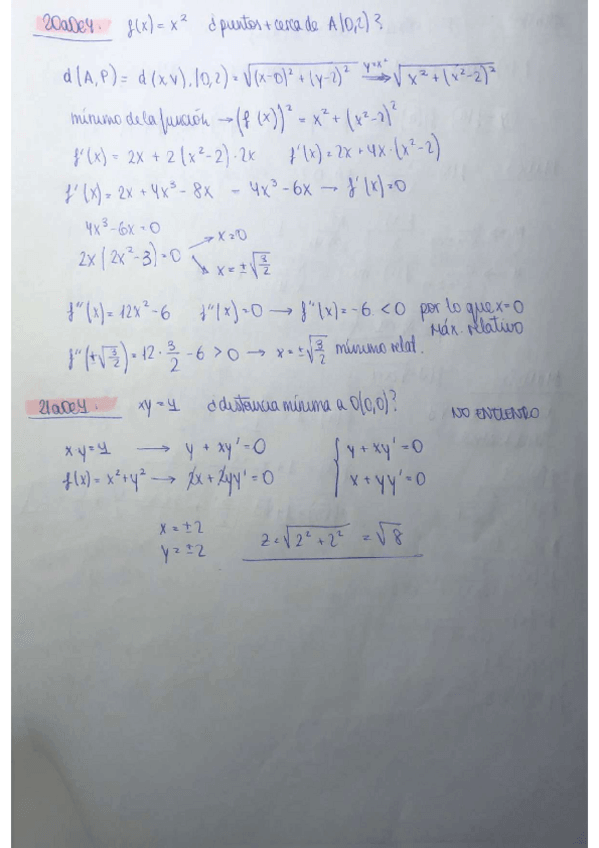 20a0e4. f(x) = x² ¿puntos + cerca de A(0,2)?
d(A,P) = d(x,y),(0,2) = √((x-0)² + (y-2)²) y=x² → √(x² + (x²-2)²)
mínimo de la función → (f(x))² = x² + (x²-2)²
f'(x) = 2x + 2(x²-2)·2x f'(x) = 2x + 4x·(x²-2)
f'(x) = 2x + 4x³ - 8x = 4x³ - 6x → f'(x) = 0
4x³ - 6x = 0
2x(2x² - 3) = 0 → x = 0
→ x = ±√(3/2)
f''(x) = 12x² - 6 f''(x) = 0 → f''(x) = -6 < 0 por lo que x = 0
Máx. relativo
f''(±√(3/2)) = 12 · 3/2 - 6 > 0 → x = ±√(3/2) mínimo relat.
21a0e4. xy = 4 ¿distancia mínima a O(0,0)? NO ENTIENDO
xy = 4 → y + xy' = 0 { y + xy' = 0
f(x) = x² + y² → 2x + 2yy' = 0 x + yy' = 0
x = ±2
y = ±2 z = √(2² + 2²) = √8